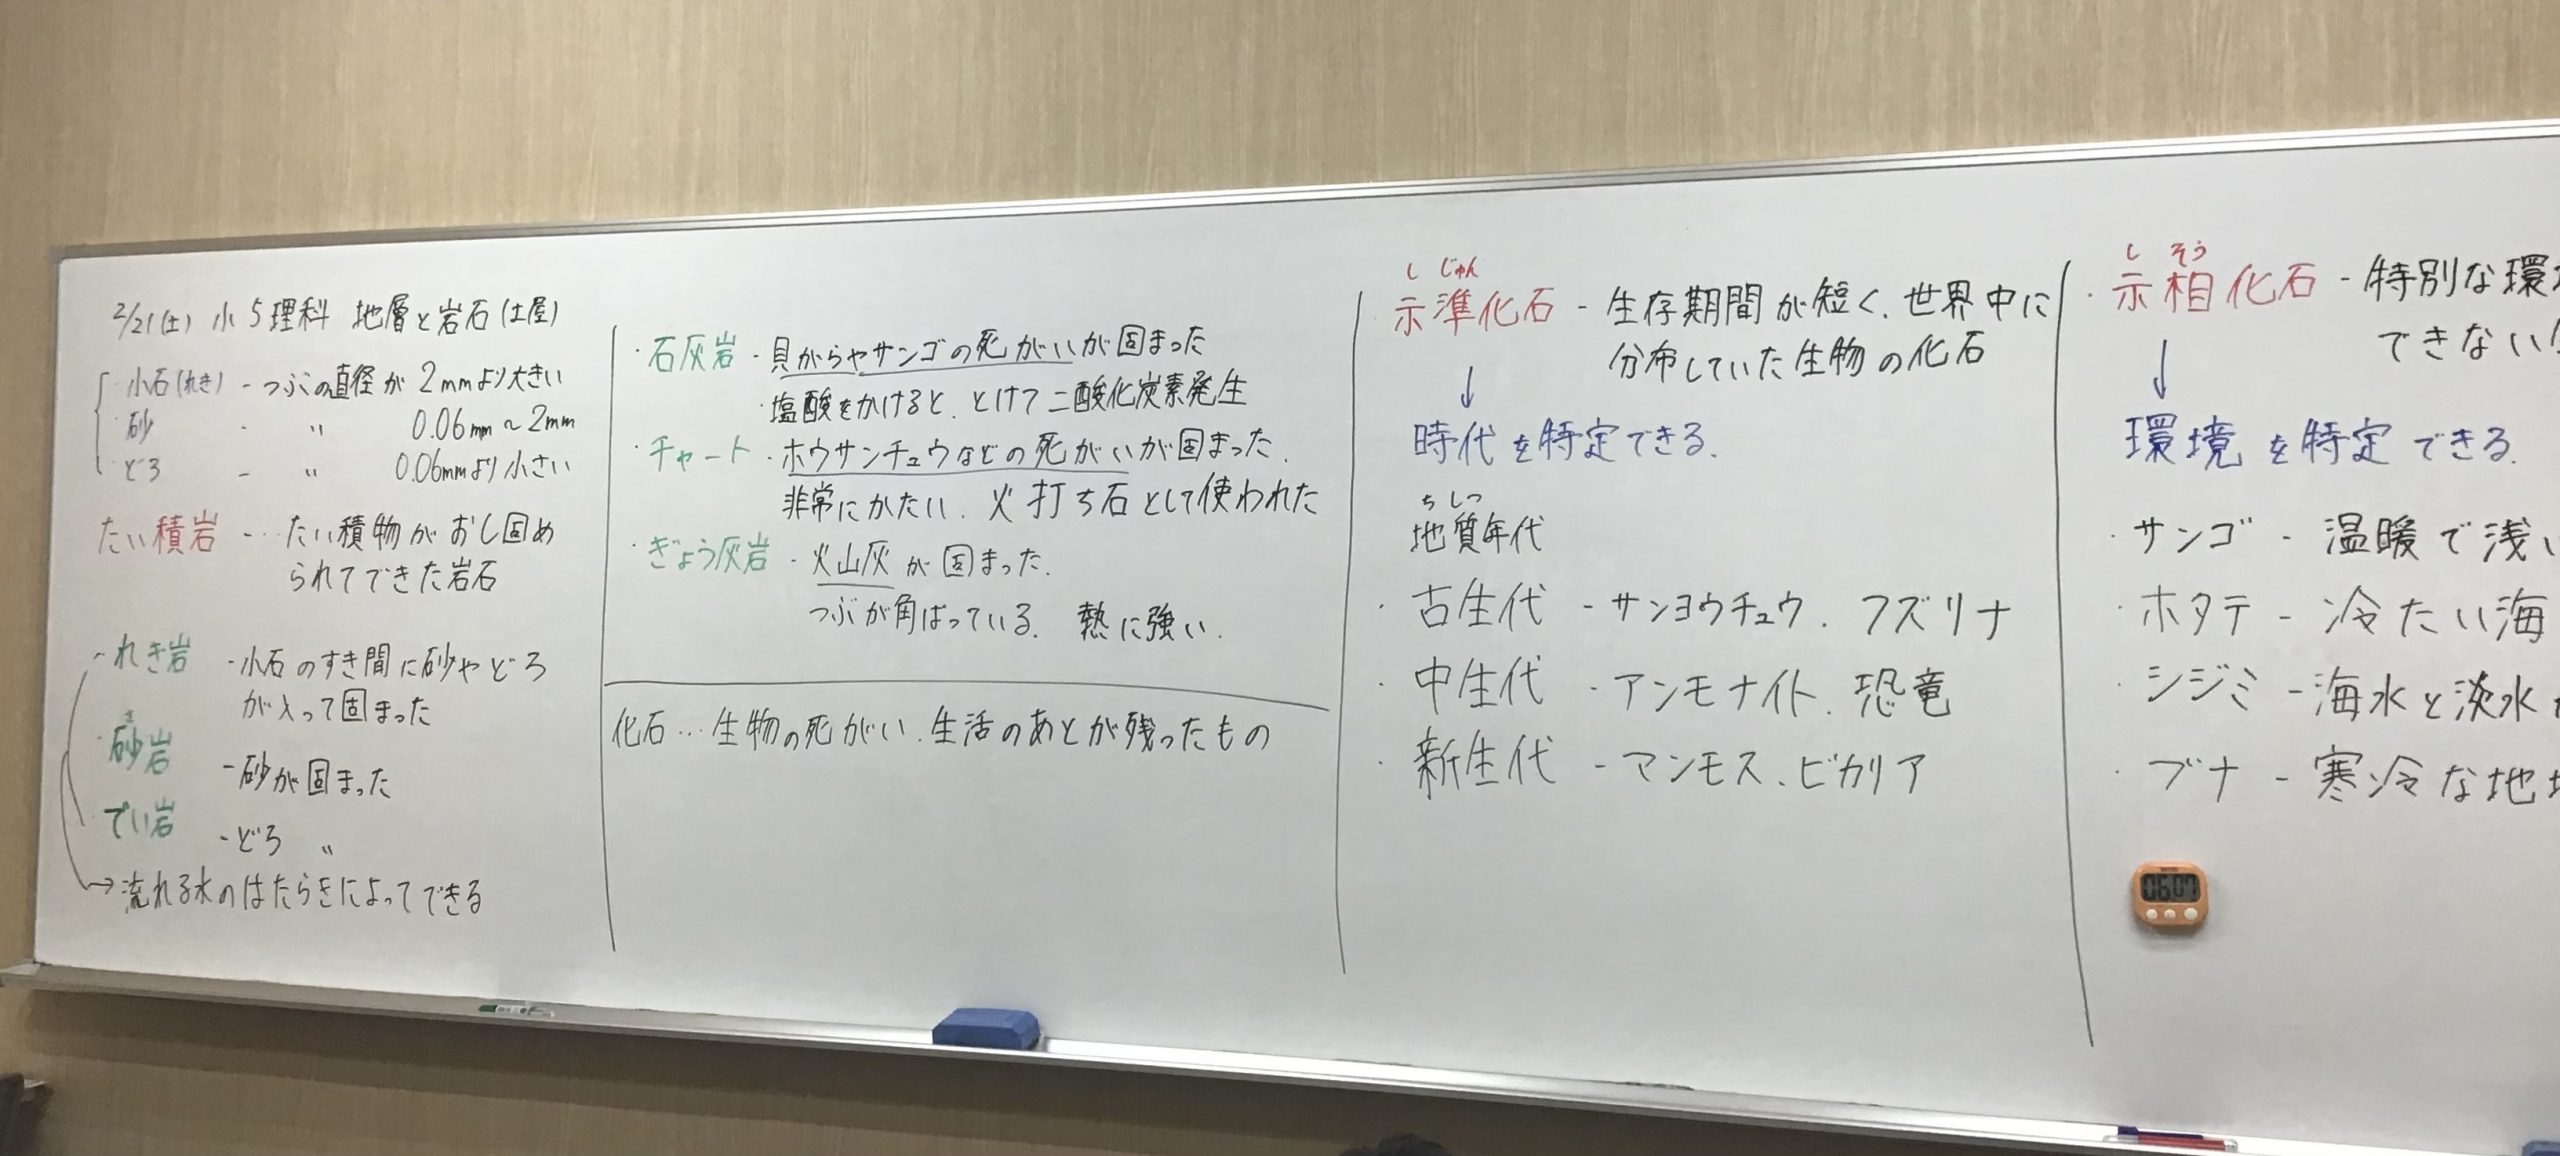 2/21(土) 小5理科 地層と岩石(土屋)
・小石(れき) - つぶの直径が 2mmより大きい
・砂 - 〃 0.06mm～2mm
・どろ - 〃 0.06mmより小さい
たい積岩 … たい積物がおし固め
られてできた岩石
・れき岩 - 小石のすき間に砂やどろ
が入って固まった
さ
・砂岩 - 砂が固まった
・でい岩 - どろ 〃
→流れる水のはたらきによってできる
・石灰岩 ・貝がらやサンゴの死がいが固まった
・塩酸をかけると、とけて二酸化炭素発生
・チャート ・ホウサンチュウなどの死がいが固まった.
非常にかたい. 火打ち石として使われた
・ぎょう灰岩 ・火山灰が固まった.
つぶが角ばっている. 熱に強い.
化石…生物の死がい、生活のあとが残ったもの
し じゅん
・示準化石 - 生存期間が短く、世界中に
分布していた生物の化石
↓
時代を特定できる.
ちしつ
地質年代
・古生代 - サンヨウチュウ、フズリナ
・中生代 - アンモナイト、恐竜
・新生代 - マンモス、ビカリア
し そう
・示相化石 - 特別な環
できない
↓
環境を特定できる.
・サンゴ - 温暖で浅い
・ホタテ - 冷たい海
・シジミ - 海水と淡水
・ブナ - 寒冷な地
06:07